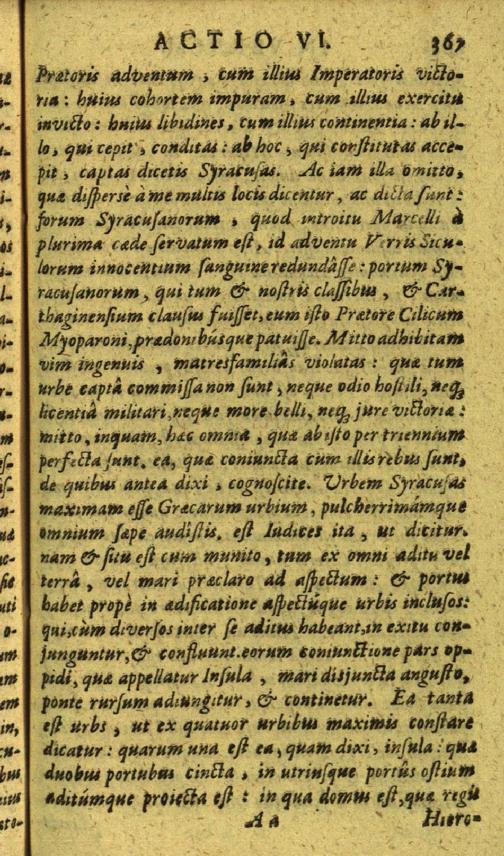 ACTIO VI. 367
Prætoris adventum, cum illius Imperatoris victo-
ria: huius cohortem impuram, cum illius exercitu
invicto: huius libidines, cum illius continentia: ab il-
lo, qui cepit, conditas: ab hoc, qui constitutas acce-
pit, captas dicetis Syracusas. Ac iam illa omitto,
quæ dispersè à me multis locis dicentur, ac dicta sunt:
forum Syracusanorum, quod introitu Marcelli à
plurima cæde servatum est, id adventu Verris Sicu-
lorum innocentium sanguine redundâsse: portum Sy-
racusanorum, qui tum & nostris classibus, & Car-
thaginensium clausus fuisset, eum isto Prætore Cilicum
Myoparoni, prædonibúsque patuisse. Mitto adhibitam
vim ingenuis, matresfamiliâs violatas: quæ tum
urbe captâ commissa non sunt, neque odio hostili, neq;
licentiâ militari, neque more belli, neq; jure victoriæ:
mitto, inquam, hæc omnia, quæ ab isto per triennium
perfecta sunt. ea, quæ coniuncta cum illis rebus sunt,
de quibus antea dixi, cognoscite. Urbem Syracusas
maximam esse Græcarum urbium, pulcherrimámque
omnium sæpe audistis. est Iudices ita, ut dicitur.
nam & situ est cum munito, tum ex omni aditu vel
terrâ, vel mari præclaro ad aspectum: & portus
habet propè in ædificatione aspectúque urbis inclusos:
qui, cùm diversos inter se aditus habeant, in exitu con-
junguntur, & confluunt. eorum coniunctione pars op-
pidi, quæ appellatur Insula, mari disjuncta angusto,
ponte rursum adiungitur, & continetur. Ea tanta
est urbs, ut ex quatuor urbibus maximis constare
dicatur: quarum una est ea, quam dixi, insula: quæ
duobus portubus cincta, in utriusque portûs ostium
aditúmque proiecta est: in qua domus est, quæ regis
Aa Hiero-